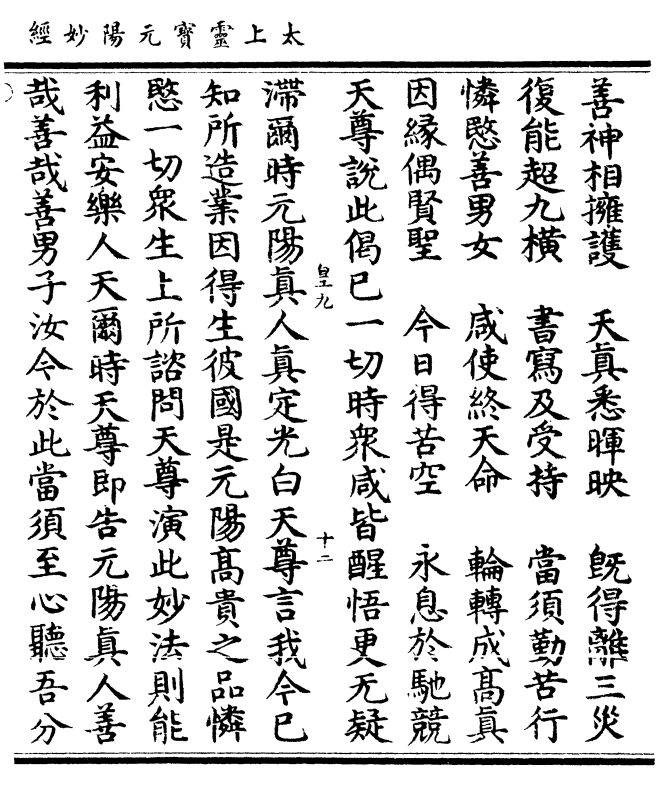 太上靈寳元陽妙經
善神相擁護　天真悉暉映　旣得離三災
復能超九橫　書寫及受持　當須勤苦行
憐愍善男女　咸使終天命　輪轉成髙真
因縁偶賢聖　今日得苦空　永息於馳競
天尊說此偈已一切時衆咸皆醒悟更无疑
皇九　十二
滯爾時元陽真人真定光白天尊言我今已
知所造業因得生彼國是元陽髙貴之品憐
愍一切衆生上所諮問天尊演此妙法則能
利益安樂人天爾時天尊即告元陽真人善
哉善哉善男子汝今於此當須至心聽吾分